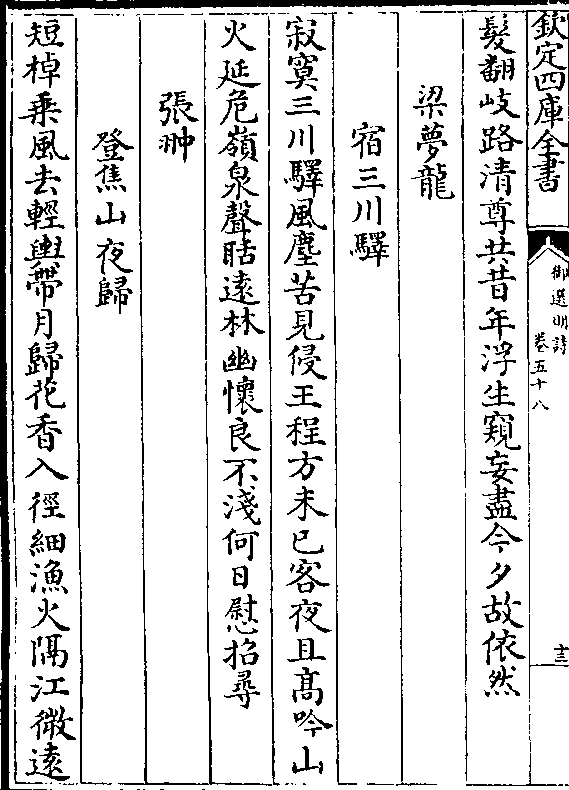 欽定四庫全書
御選明詩
卷五十八
十三
髮翻岐路清尊共昔年浮生窺妄盡今夕故依然
梁夢龍
宿三川驛
寂寞三川驛風塵苦見侵王程方未已客夜且高吟山
火延危嶺泉聲聒遠林幽懷良不淺何日慰招尋
張翀
登焦山夜歸
短棹乗風去輕輿帶月歸花香入徑細漁火隔江微遠